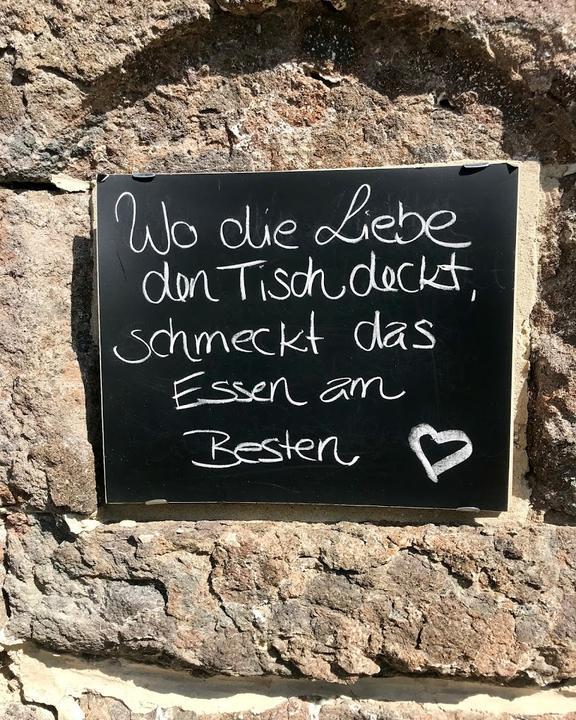 Wo die Liebe
den Tisch deckt,
schmeckt das
Essen am
Besten